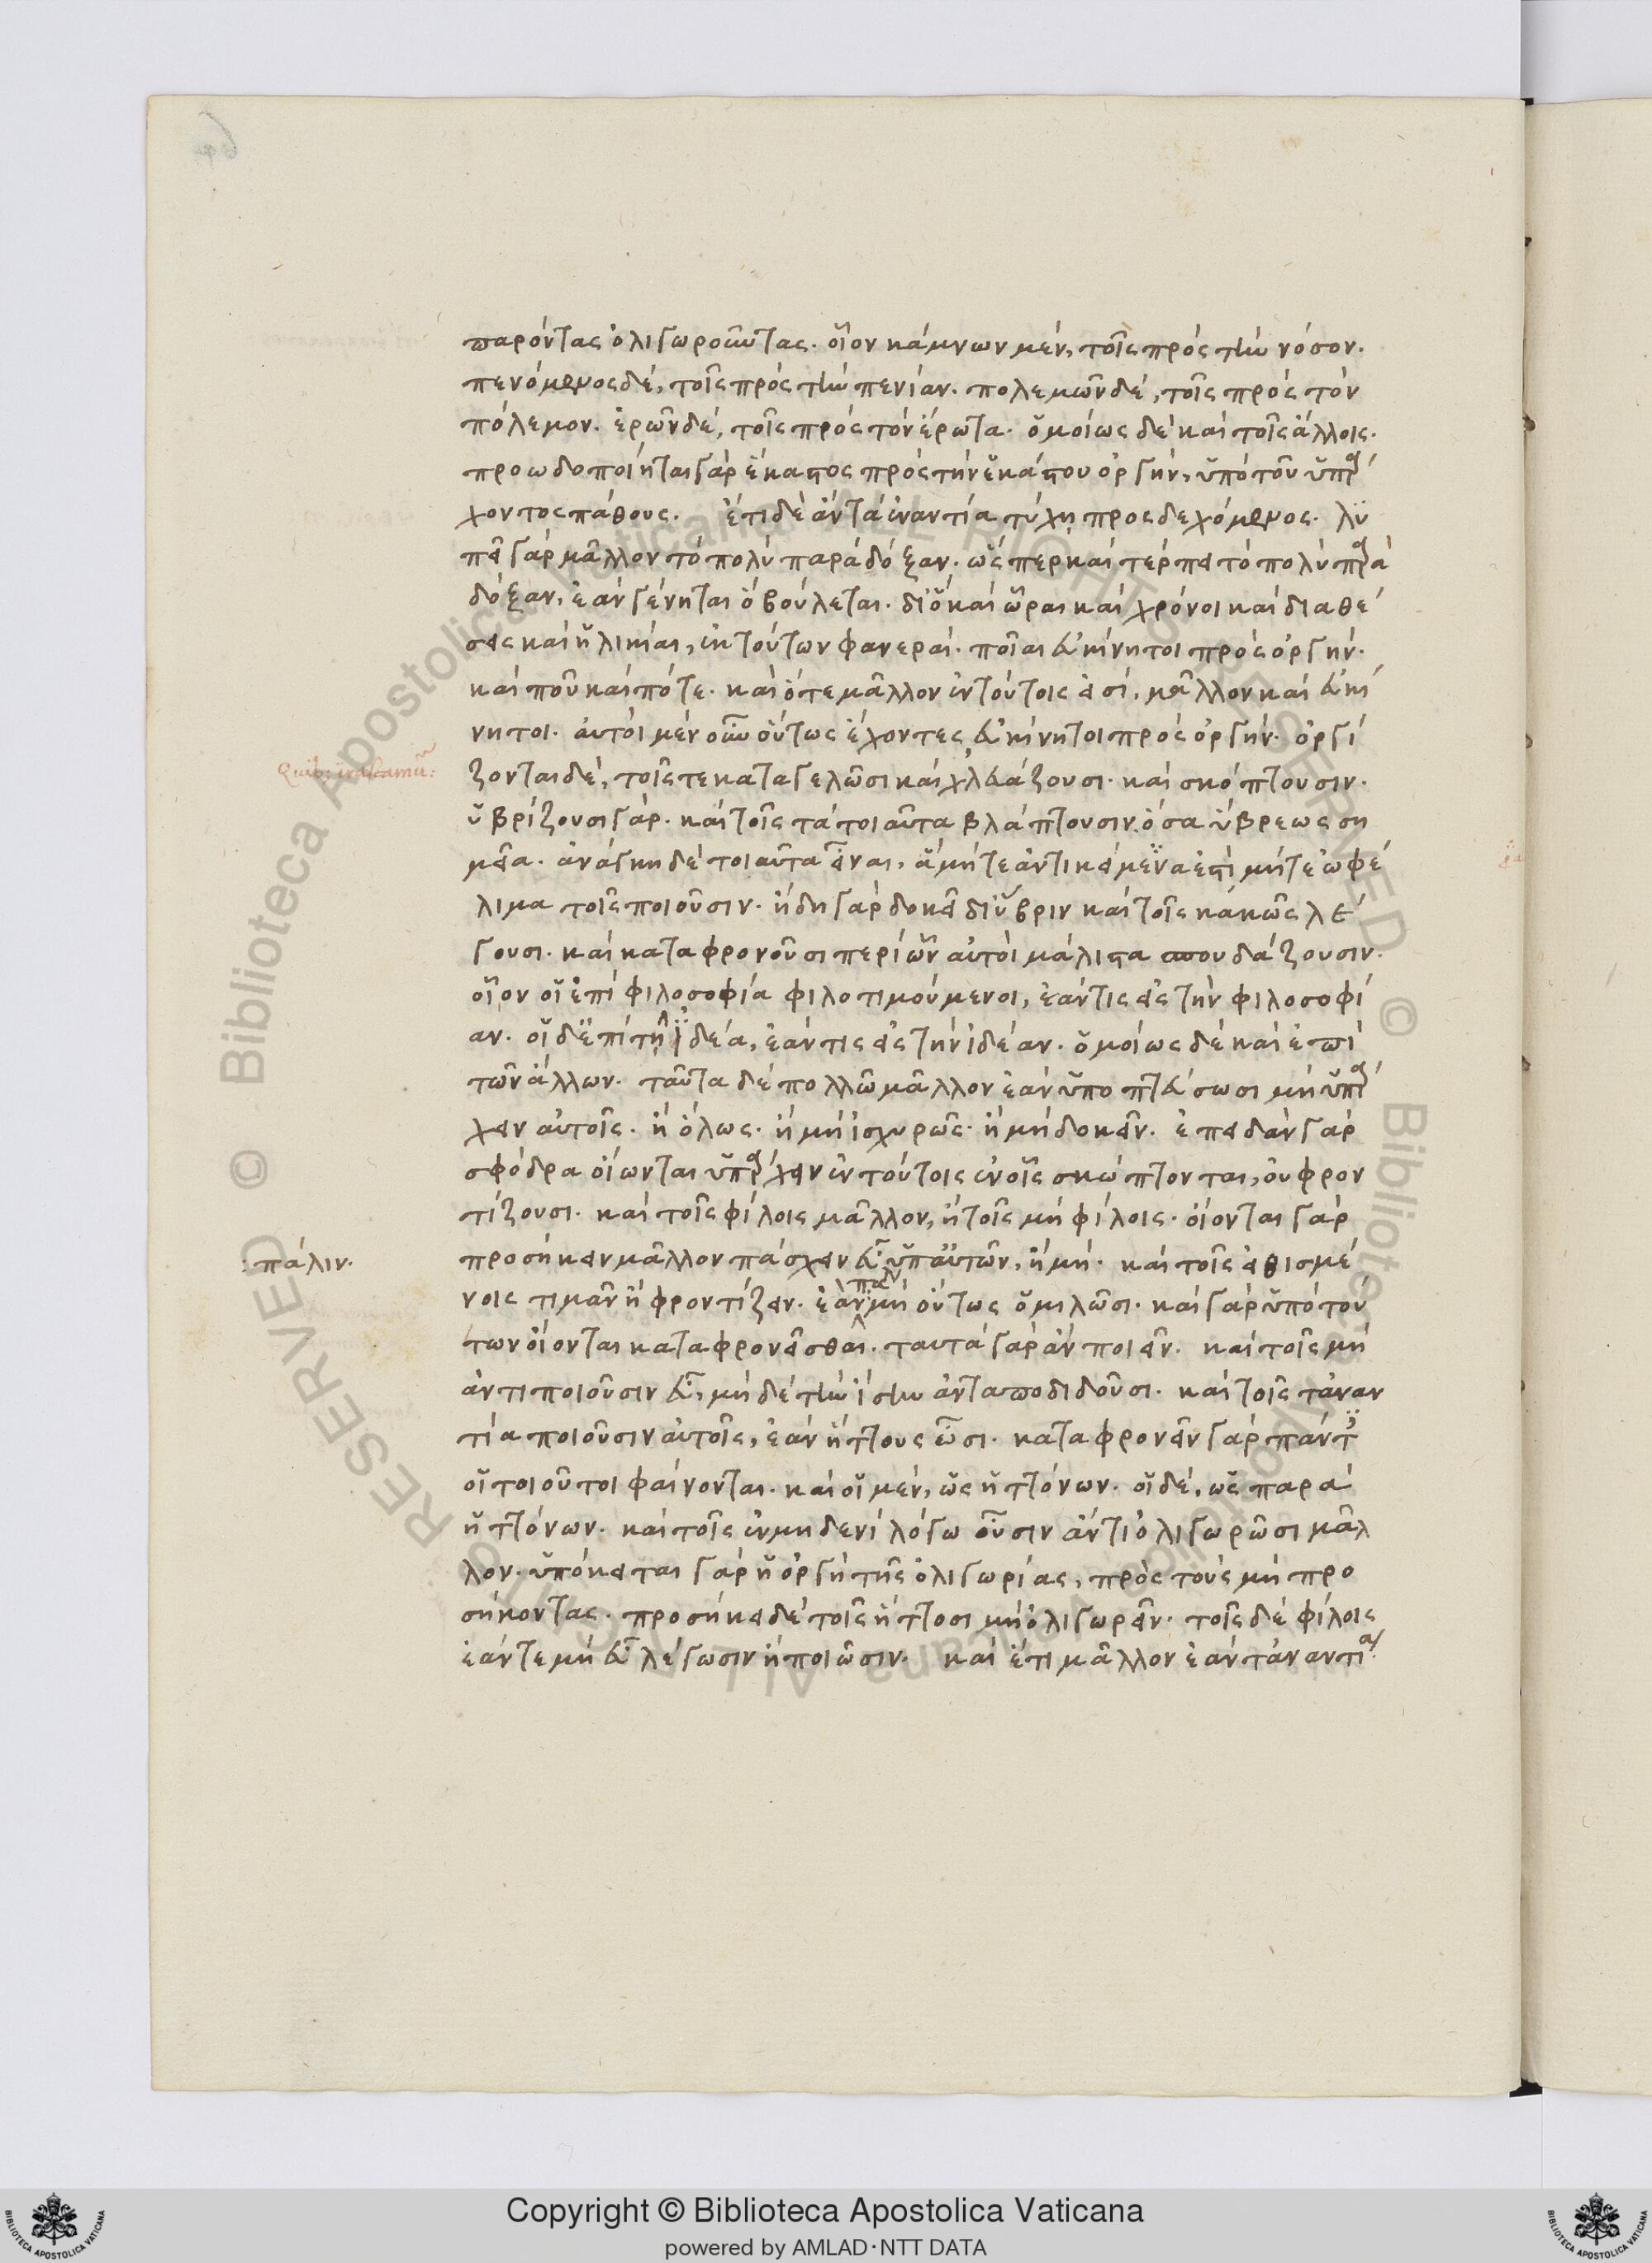 παρόντας ὀλιγωροῦντας. οἷον κάμνων μέν, τοῖς πρὸς τὴν νόσον.
πενόμενος δέ, τοῖς πρὸς τὴν πενίαν. πολεμῶν δέ, τοῖς πρὸς τὸν
πόλεμον. ἐρῶν δέ, τοῖς πρὸς τὸν ἔρωτα. ὁμοίως δὲ καὶ τοῖς ἄλλοις.
προωδοποίηται γὰρ ἕκαστος πρὸς τὴν ἑκάστου ὀργήν, ὑπὸ τοῦ ὑπάρ
χοντος πάθους. ἔτι δὲ ἂν τἀναντία τύχῃ προσδεχόμενος. λυ
πεῖ γὰρ μᾶλλον τὸ πολὺ παρὰ δόξαν. ὥσπερ καὶ τέρπει τὸ πολὺ παρὰ
δόξαν, ἐὰν γένηται ὃ βούλεται. διὸ καὶ ὧραι καὶ χρόνοι καὶ διαθέ
σεις καὶ ἡλικίαι, ἐκ τούτων φανεραί. ποῖαι εὐκίνητοι πρὸς ὀργήν.
καὶ ποῦ καὶ πότε. καὶ ὅτε μᾶλλον ἐν τούτοις εἰσί, μᾶλλον καὶ εὐκί
νητοι. αὐτοὶ μὲν οὖν οὕτως ἔχοντες εὐκίνητοι πρὸς ὀργήν. ὀργί
Quib: irascamur:
ζονται δέ, τοῖς τε καταγελῶσι καὶ χλευάζουσι. καὶ σκόπτουσιν.
ὑβρίζουσι γάρ. καὶ τοῖς τὰ τοιαῦτα βλάπτουσιν. ὅσα ὕβρεως ση
μεῖα. ἀνάγκη δὲ τοιαῦτα εἶναι, ἃ μήτε ἀντικείμενα ἐστὶ μήτε ὠφέ
λιμα τοῖς ποιοῦσιν. ἤδη γὰρ δοκεῖ δι ὕβριν καὶ τοῖς κακῶς λέ
γουσι. καὶ καταφρονοῦσι περὶ ὧν αὐτοὶ μάλιστα σπουδάζουσιν.
οἷον οἱ ἐπὶ φιλοσοφία φιλοτιμούμενοι, ἐάν τις εἰς τὴν φιλοσοφί
αν. οἱ δ ἐπὶ τῆ ἰδέα, ἐάν τις εἰς τὴν ἰδέαν. ὁμοίως δὲ καὶ ἐπὶ
τῶν ἄλλων. ταῦτα δὲ πολλῶ μᾶλλον ἐὰν ὑποπτεύσωσι μὴ ὑπάρ
χειν αὐτοῖς. ἢ ὅλως. ἢ μὴ ἰσχυρῶς. ἢ μὴ δοκεῖν. ἐπειδὰν γὰρ
σφόδρα οἴωνται ὑπάρχειν ἐν τούτοις ἐν οἷς σκώπτονται, οὐ φρον
τίζουσι. καὶ τοῖς φίλοις μᾶλλον, ἢ τοῖς μὴ φίλοις. οἴονται γὰρ
:πάλιν.
προσήκειν μᾶλλον πάσχειν εὖ ὑπ αὐτῶν, ἢ μή. καὶ τοῖς εἰθισμέ
νοις τιμᾶν ἢ φροντίζειν. ἐὰν πάλιν μὴ οὕτως ὁμιλῶσι. καὶ γὰρ ὑπὸ τού
των οἴονται καταφρονεῖσθαι. ταυτὰ γὰρ ἂν ποιεῖν. καὶ τοῖς μὴ
ἀντιποιοῦσιν εὖ, μηδὲ τὴν ἴσην ἀνταποδιδοῦσι. καὶ τοῖς τἀναν
τία ποιοῦσιν αὐτοῖς, ἐὰν ἥττους ὦσι. καταφρονεῖν γὰρ πάντες
οἱ τοιοῦτοι φαίνονται. καὶ οἱ μέν, ὡς ἡττόνων. οἱ δέ, ὡς παρὰ
ἡττόνων. καὶ τοῖς ἐν μηδενὶ λόγω οὖσιν ἄν τι ὀλιγωρῶσι μᾶλ
λον. ὑπόκειται γὰρ ἡ ὀργὴ τῆς ὀλιγωρίας, πρὸς τοὺς μὴ προ
σήκοντας. προσήκει δὲ τοῖς ἥττοσι μὴ ὀλιγωρεῖν. τοῖς δὲ φίλοις
ἐάν τε μὴ εὖ λέγωσιν ἢ ποιῶσιν. καὶ ἔτι μᾶλλον ἐὰν τἀναντία.
Copyright © Biblioteca Apostolica Vaticana
powered by AMLAD·NTT DATA